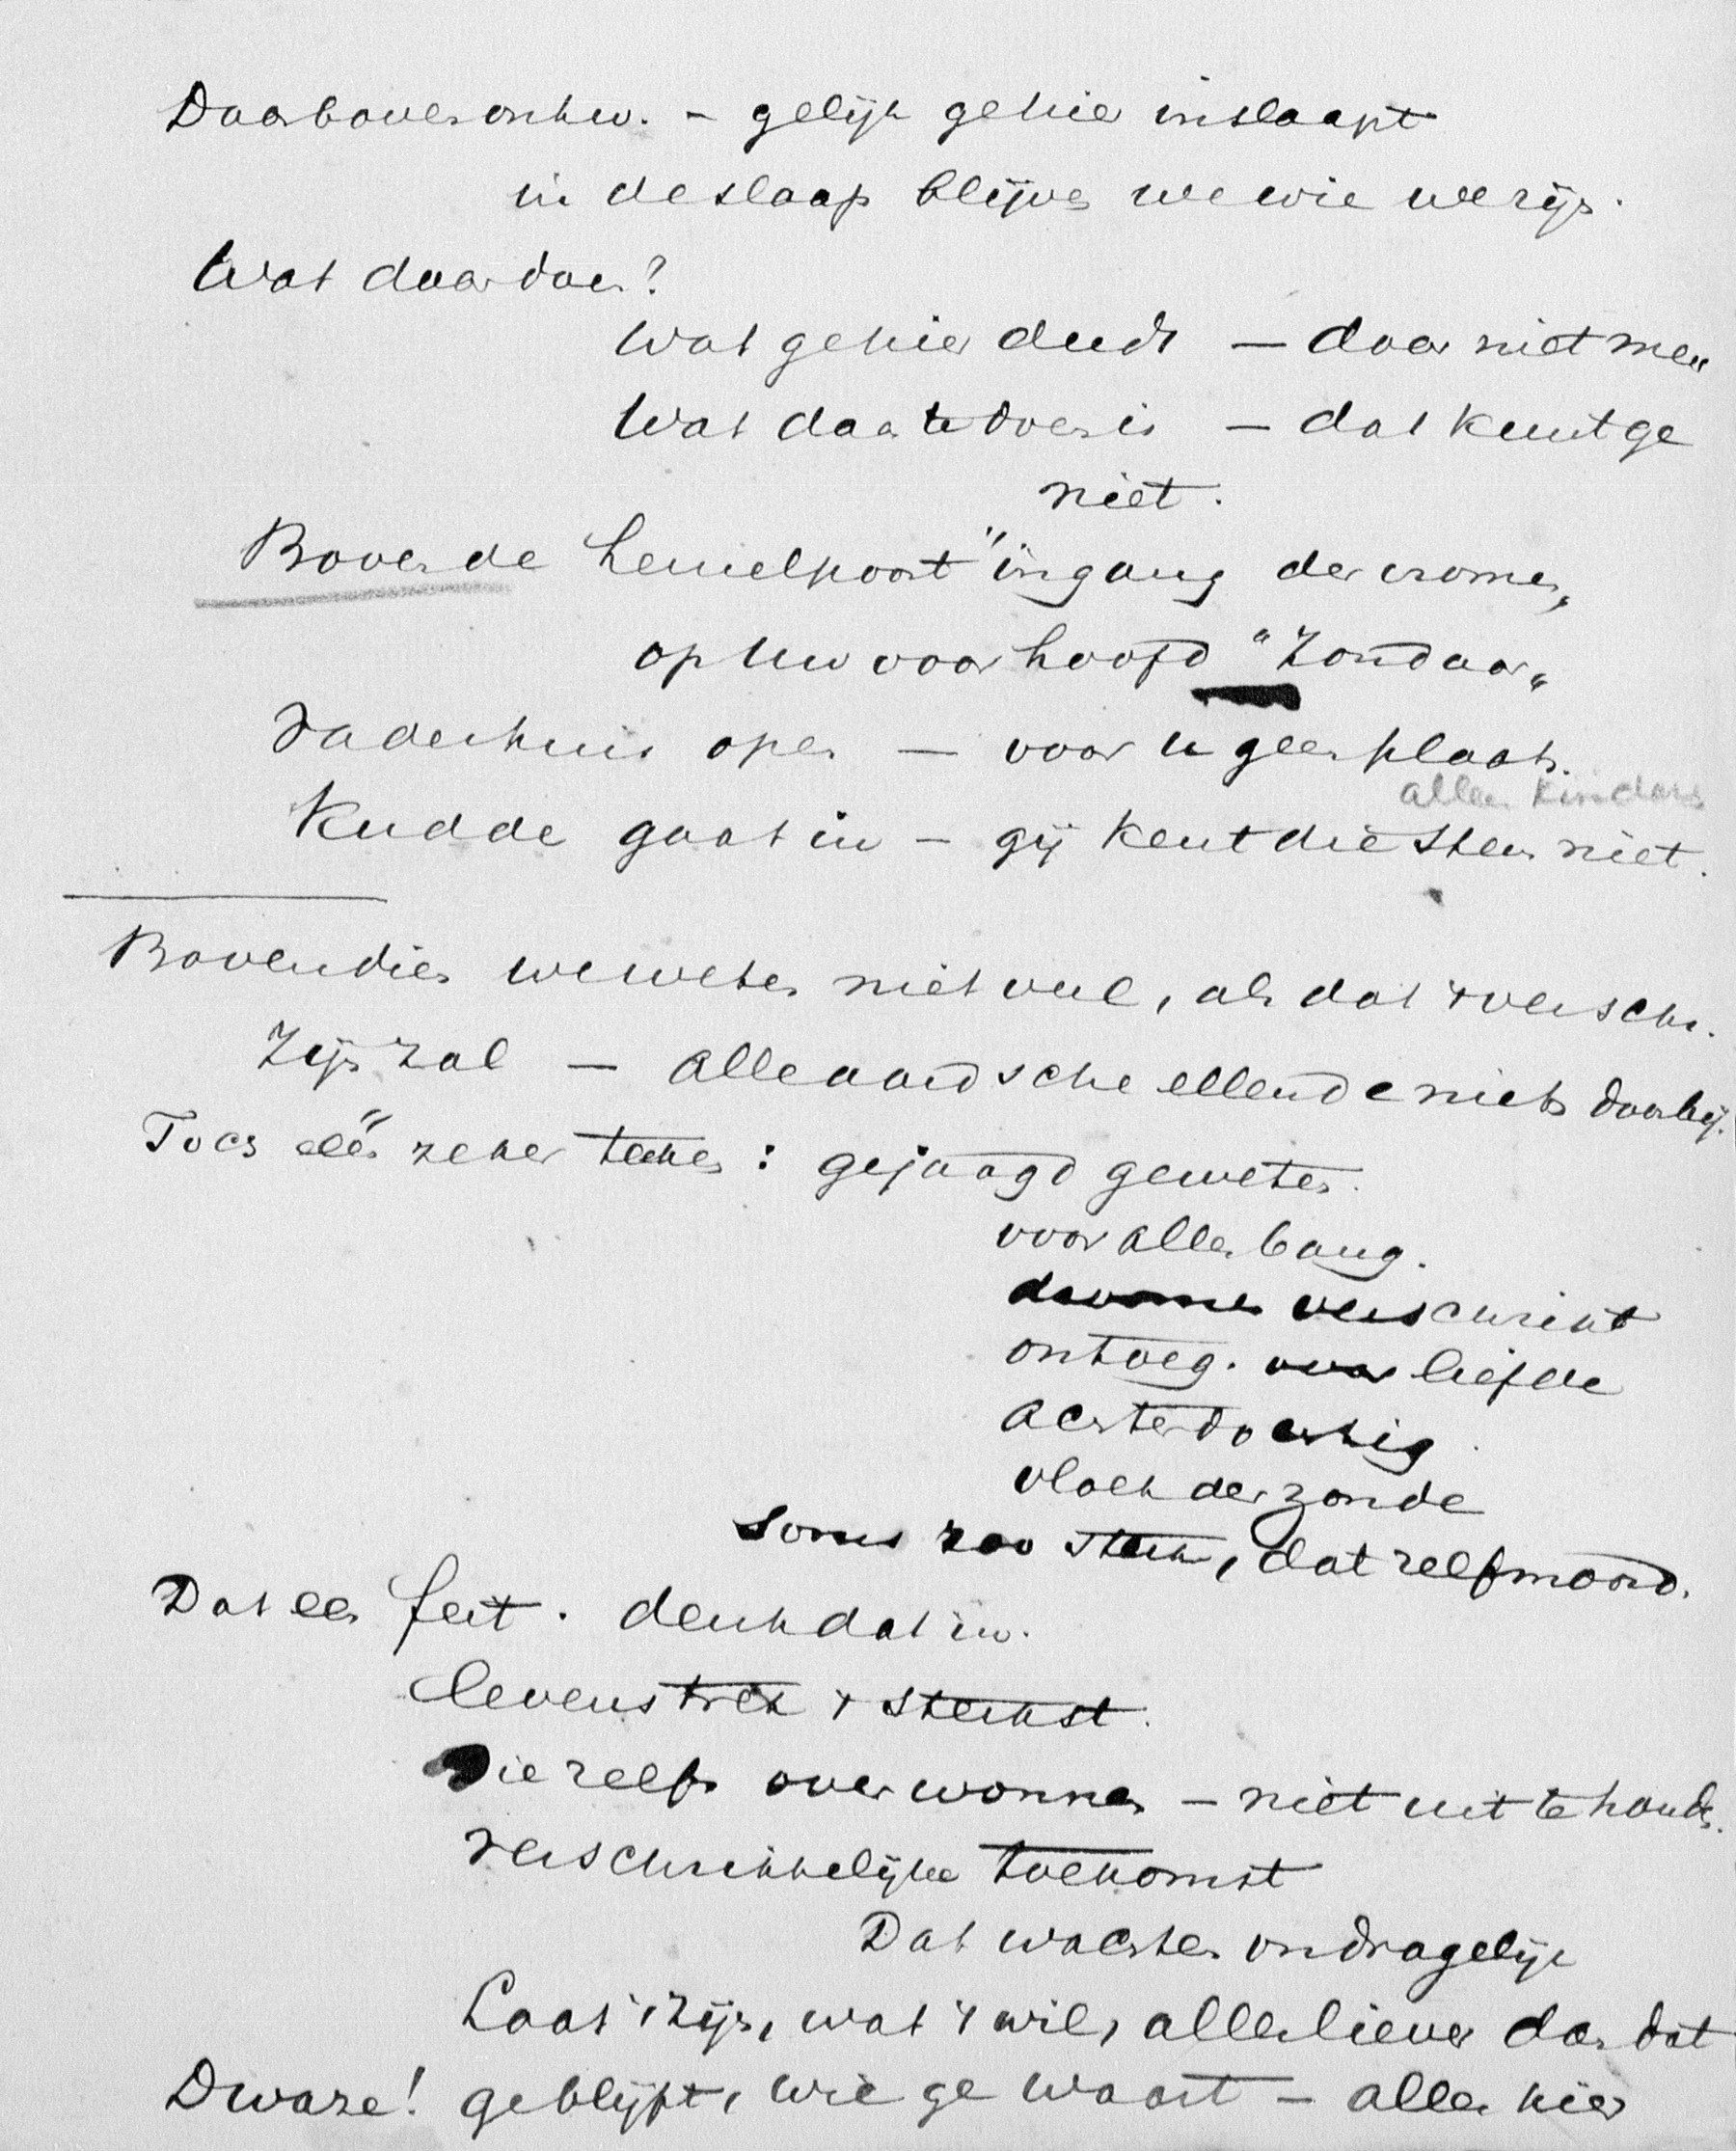 Daarboven ontw. – gelijk ge hier inslaapt
in de slaap blijven we wie we zijn.
Wat daar doen?
Wat ge hier deedt – daar niet meer
Wat daar te doen is – dat kunt ge
niet.
Boven de hemelpoort "ingang der vromen„
op uw voorhoofd "Zondaar„
Vaderhuis open – voor u geen plaats.
allen kinders
Kudde gaat in – gij kent die stem niet.
Bovendien we weten niet veel, als dat 't versch.
zijn zal – alle aardsche ellende niets daarbij.
Toch één zeker teeken: gejaagd geweten.
voor alles bang.
verschrikt
ontvog. voor liefde
achterdochtig.
vloek der zonde
soms zoo sterk, dat zelfmoord.
Dat een feit. denk dat in.
levenstrek 't sterkst.
Die zelfs overwonnen – niet uit te houden.
verschrikkelijke toekomst
Dat wachten ondragelijk
Laat 't zijn, wat 't wil, alles liever dan dat
Dwaze! ge blijft, wie ge waart – alles hier